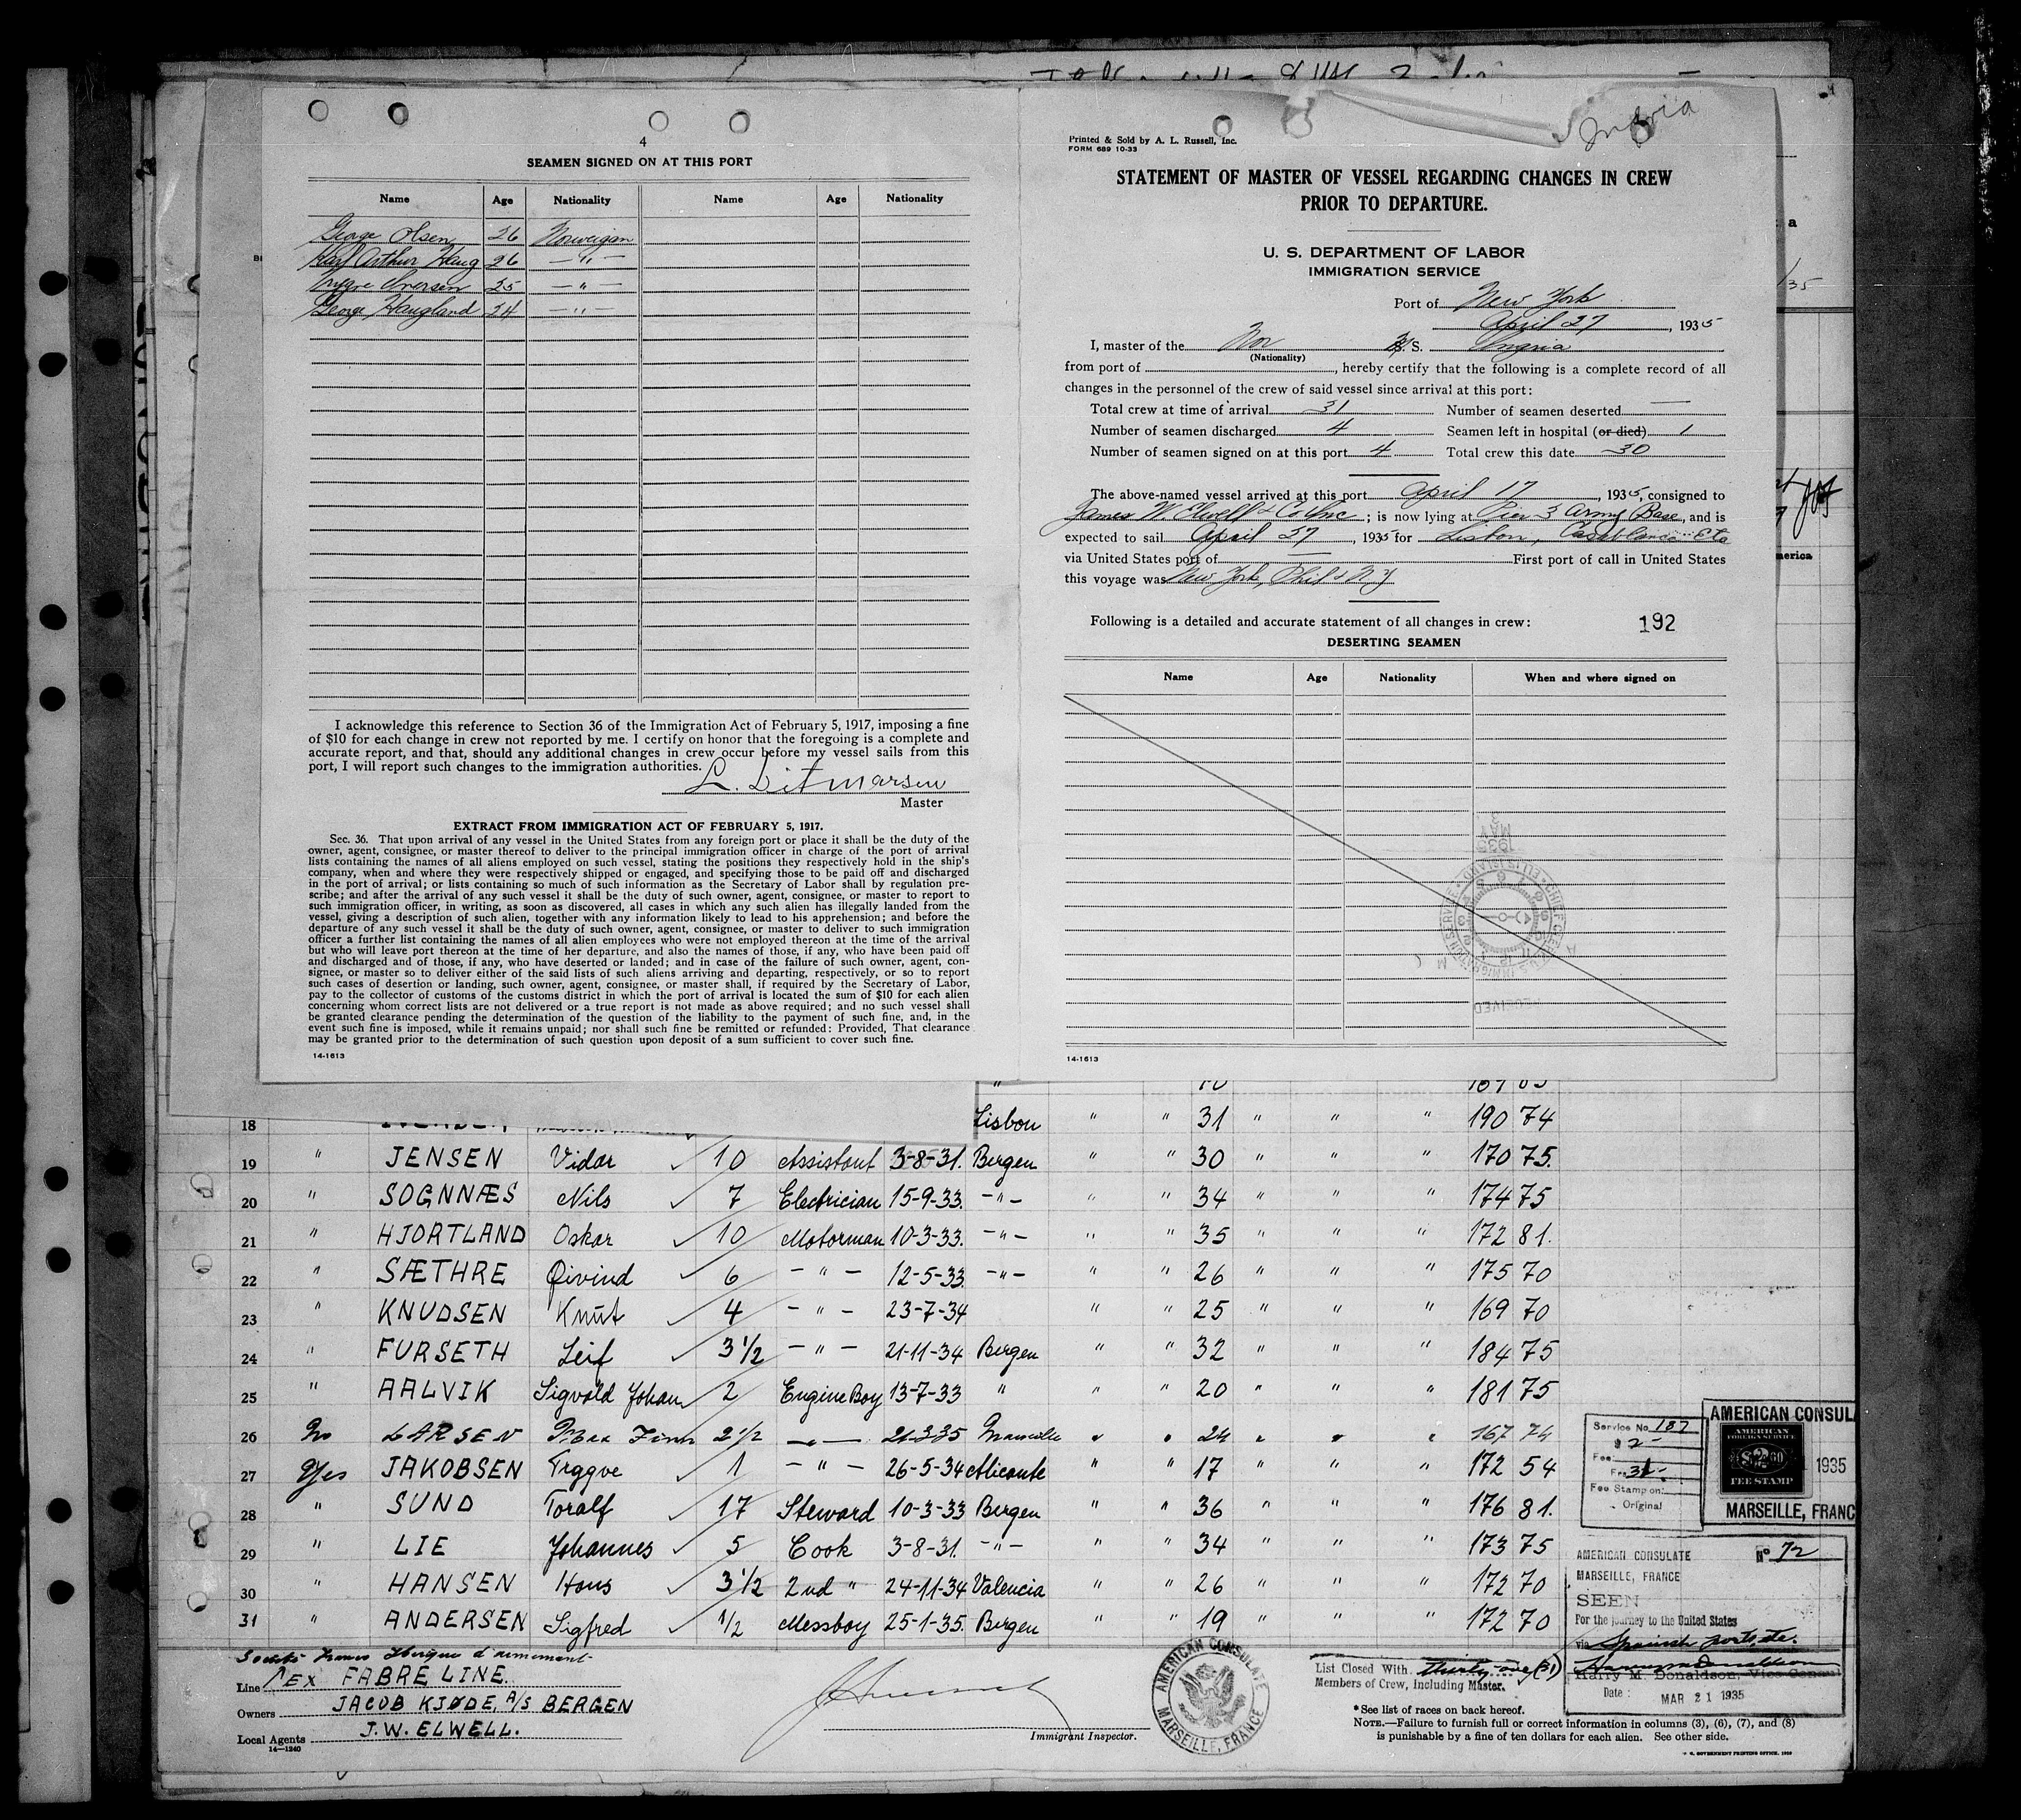 Ingria
4
SEAMEN SIGNED ON AT THIS PORT
Name Age Nationality Name Age Nationality
George Olsen 26 Norweigan
Karl Arthur Haug 26 — " —
Yngve Iversen 25 — " —
George Haugland 24 — " —
I acknowledge this reference to Section 36 of the Immigration Act of February 5, 1917, imposing a fine
of $10 for each change in crew not reported by me. I certify on honor that the foregoing is a complete and
accurate report, and that, should any additional changes in crew occur before my vessel sails from this
port, I will report such changes to the immigration authorities.
L. Ditmarsen
Master
EXTRACT FROM IMMIGRATION ACT OF FEBRUARY 5, 1917.
Sec. 36. That upon arrival of any vessel in the United States from any foreign port or place it shall be the duty of the
owner, agent, consignee, or master thereof to deliver to the principal immigration officer in charge of the port of arrival
lists containing the names of all aliens employed on such vessel, stating the positions they respectively hold in the ship's
company, when and where they were respectively shipped or engaged, and specifying those to be paid off and discharged
in the port of arrival; or lists containing so much of such information as the Secretary of Labor shall by regulation pre-
scribe; and after the arrival of any such vessel it shall be the duty of such owner, agent, consignee, or master to report to
such immigration officer, in writing, as soon as discovered, all cases in which any such alien has illegally landed from the
vessel, giving a description of such alien, together with any information likely to lead to his apprehension; and before the
departure of any such vessel it shall be the duty of such owner, agent, consignee, or master to deliver to such immigration
officer a further list containing the names of all alien employees who were not employed thereon at the time of the arrival
but who will leave port thereon at the time of her departure, and also the names of those, if any, who have been paid off
and discharged and of those, if any, who have deserted or landed; and in case of the failure of such owner, agent, con-
signee, or master so to deliver either of the said lists of such aliens arriving and departing, respectively, or so to report
such cases of desertion or landing, such owner, agent, consignee, or master shall, if required by the Secretary of Labor,
pay to the collector of customs of the customs district in which the port of arrival is located the sum of $10 for each alien
concerning whom correct lists are not delivered or a true report is not made as above required; and no such vessel shall
be granted clearance pending the determination of the question of the liability to the payment of such fine, and, in the
event such fine is imposed, while it remains unpaid; nor shall such fine be remitted or refunded: Provided, That clearance
may be granted prior to the determination of such question upon deposit of a sum sufficient to cover such fine.
14-1613
Printed & Sold by A. L. Russell, Inc.
FORM 689 10-33
STATEMENT OF MASTER OF VESSEL REGARDING CHANGES IN CREW
PRIOR TO DEPARTURE.
U. S. DEPARTMENT OF LABOR
IMMIGRATION SERVICE
Port of New York
April 27, 1935
I, master of the Nor M. S. Ingria
(Nationality)
from port of , hereby certify that the following is a complete record of all
changes in the personnel of the crew of said vessel since arrival at this port:
Total crew at time of arrival 31 Number of seamen deserted —
Number of seamen discharged 4 Seamen left in hospital (or died) 1
Number of seamen signed on at this port 4 Total crew this date 30
The above-named vessel arrived at this port April 17, 1935, consigned to
James W. Elwell & Co Inc; is now lying at Pier 3 Army Base, and is
expected to sail April 27, 1935 for Lisbon, Casablanca Etc
via United States port of — First port of call in United States
this voyage was New York, Phil & N.Y
Following is a detailed and accurate statement of all changes in crew: 192
DESERTING SEAMEN
Name Age Nationality When and where signed on
14-1613
18 Lisbon " " 31 " " " 190 74
19 " JENSEN Vidar 10 Assistant 3-8-31. Bergen " " 30 " " " 170 75.
20 " SOGNNÆS Nils 7 Electrician 15-9-33. -"- " " 34 " " " 174 75
21 " HJORTLAND Oskar 10 Motorman 10-3-33. -"- " " 35 " " " 172 81.
22 " SÆTHRE Øivind 6 - " - 12-5-33. -"- " " 26 " " " 175 70
23 " KNUDSEN Knut 4 - " - 23-7-34 " " 25 " " " 169 70
24 " FURSETH Leif 3 1/2 - " - 21-11-34 Bergen " " 32 " " " 184 75
25 " AALVIK Sigvald Johan 2 Engine Boy 13-7-33 " " " 20 " " " 181 75
26 No LARSEN Max Finn 2 1/2 - " - 21-3-35 Marseille " " 24 " " " 167 74
27 Yes JAKOBSEN Trygve 1 - " - 26-5-34 Alicante " " 17 " " " 172 54
28 " SUND Toralf 17 Steward 10-3-33 Bergen " " 36 " " " 176 81.
29 " LIE Johannes 5 Cook 3-8-31. -"- " " 34 " " " 173 75
30 " HANSEN Hans 3 1/2 2nd " 24-11-34 Valencia " " 26 " " " 172 70
31 " ANDERSEN Sigfred 1/2 Messboy 25-1-35. Bergen " " 19 " " " 172 70
Line EX FABRE LINE.
Owners JACOB KJØDE, A/S BERGEN
Local Agents J.W. ELWELL.
14-1240
Immigrant Inspector.
AMERICAN CONSULATE
MARSEILLE, FRANCE
List Closed With thirty one (31)
Members of Crew, Including Master.
*See list of races on back hereof.
NOTE.—Failure to furnish full or correct information in columns (3), (6), (7), and (8)
is punishable by a fine of ten dollars for each alien. See other side.
U. S. GOVERNMENT PRINTING OFFICE
Service No. 187
Fee
Fee Stamp on:
Original
AMERICAN CONSUL
AMERICAN FOREIGN SERVICE
$2.00
FEE STAMP
1935
MARSEILLE, FRANC
AMERICAN CONSULATE No 72
MARSEILLE, FRANCE
SEEN
For the journey to the United States
via Spanish ports, etc.
Harry M. Donaldson, Vice Consul
Date: MAR 21 1935